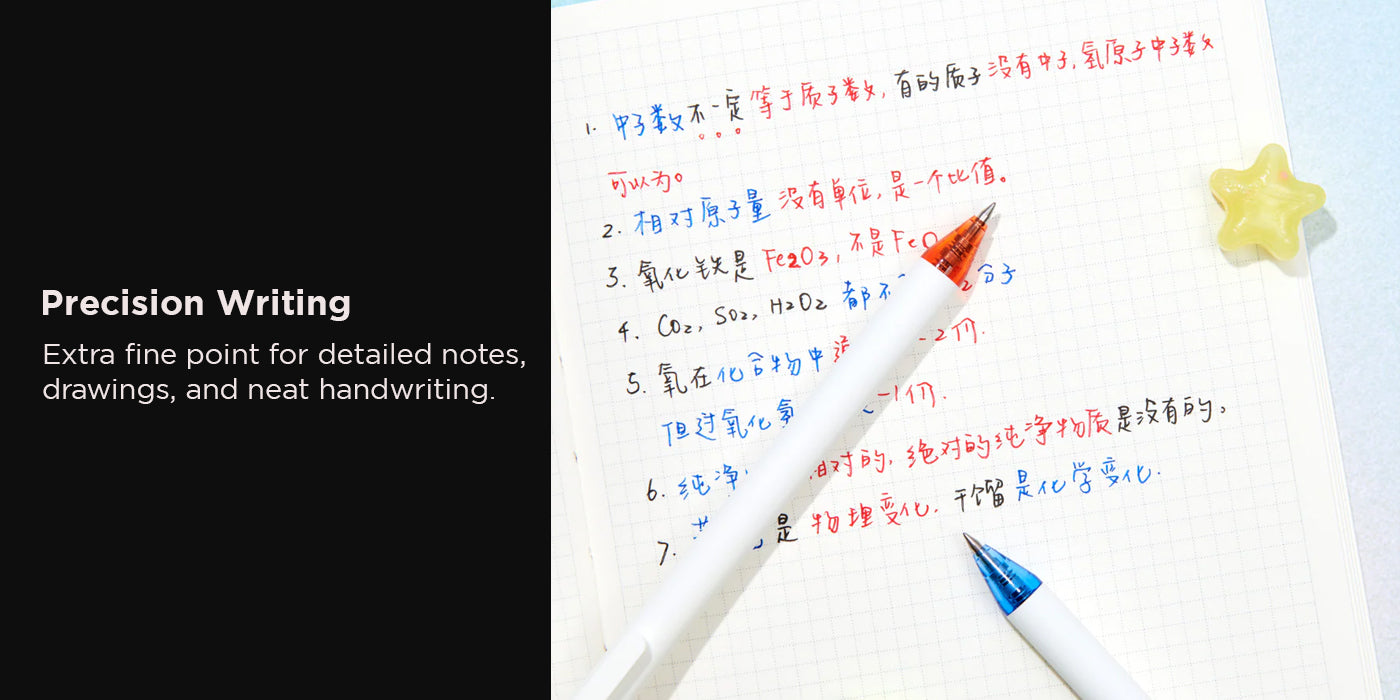 Precision Writing
Extra fine point for detailed notes,
drawings, and neat handwriting.
1. 中子数不一定等于质子数,有的质子没有中子,氢原子中子数
可以为0
2. 相对原子量没有单位,是一个比值。
3. 氧化铁是Fe2O3,不是FeO
4. CO2, SO2, H2O2 都不 2分子
5. 氧在化合物中 -2价.
但过氧化氢 -1价.
6. 纯净 相对的,绝对的纯净物质是没有的。
7. 是物理变化.干馏是化学变化.